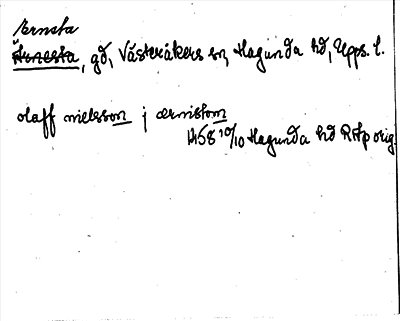 Ärnsta
Ärnesta, gd, Västeråkers sn, Hagunda hd, Upps. l.
olaff nielsson j ærnistom
1458 10/10 Hagunda hd RAp orig.